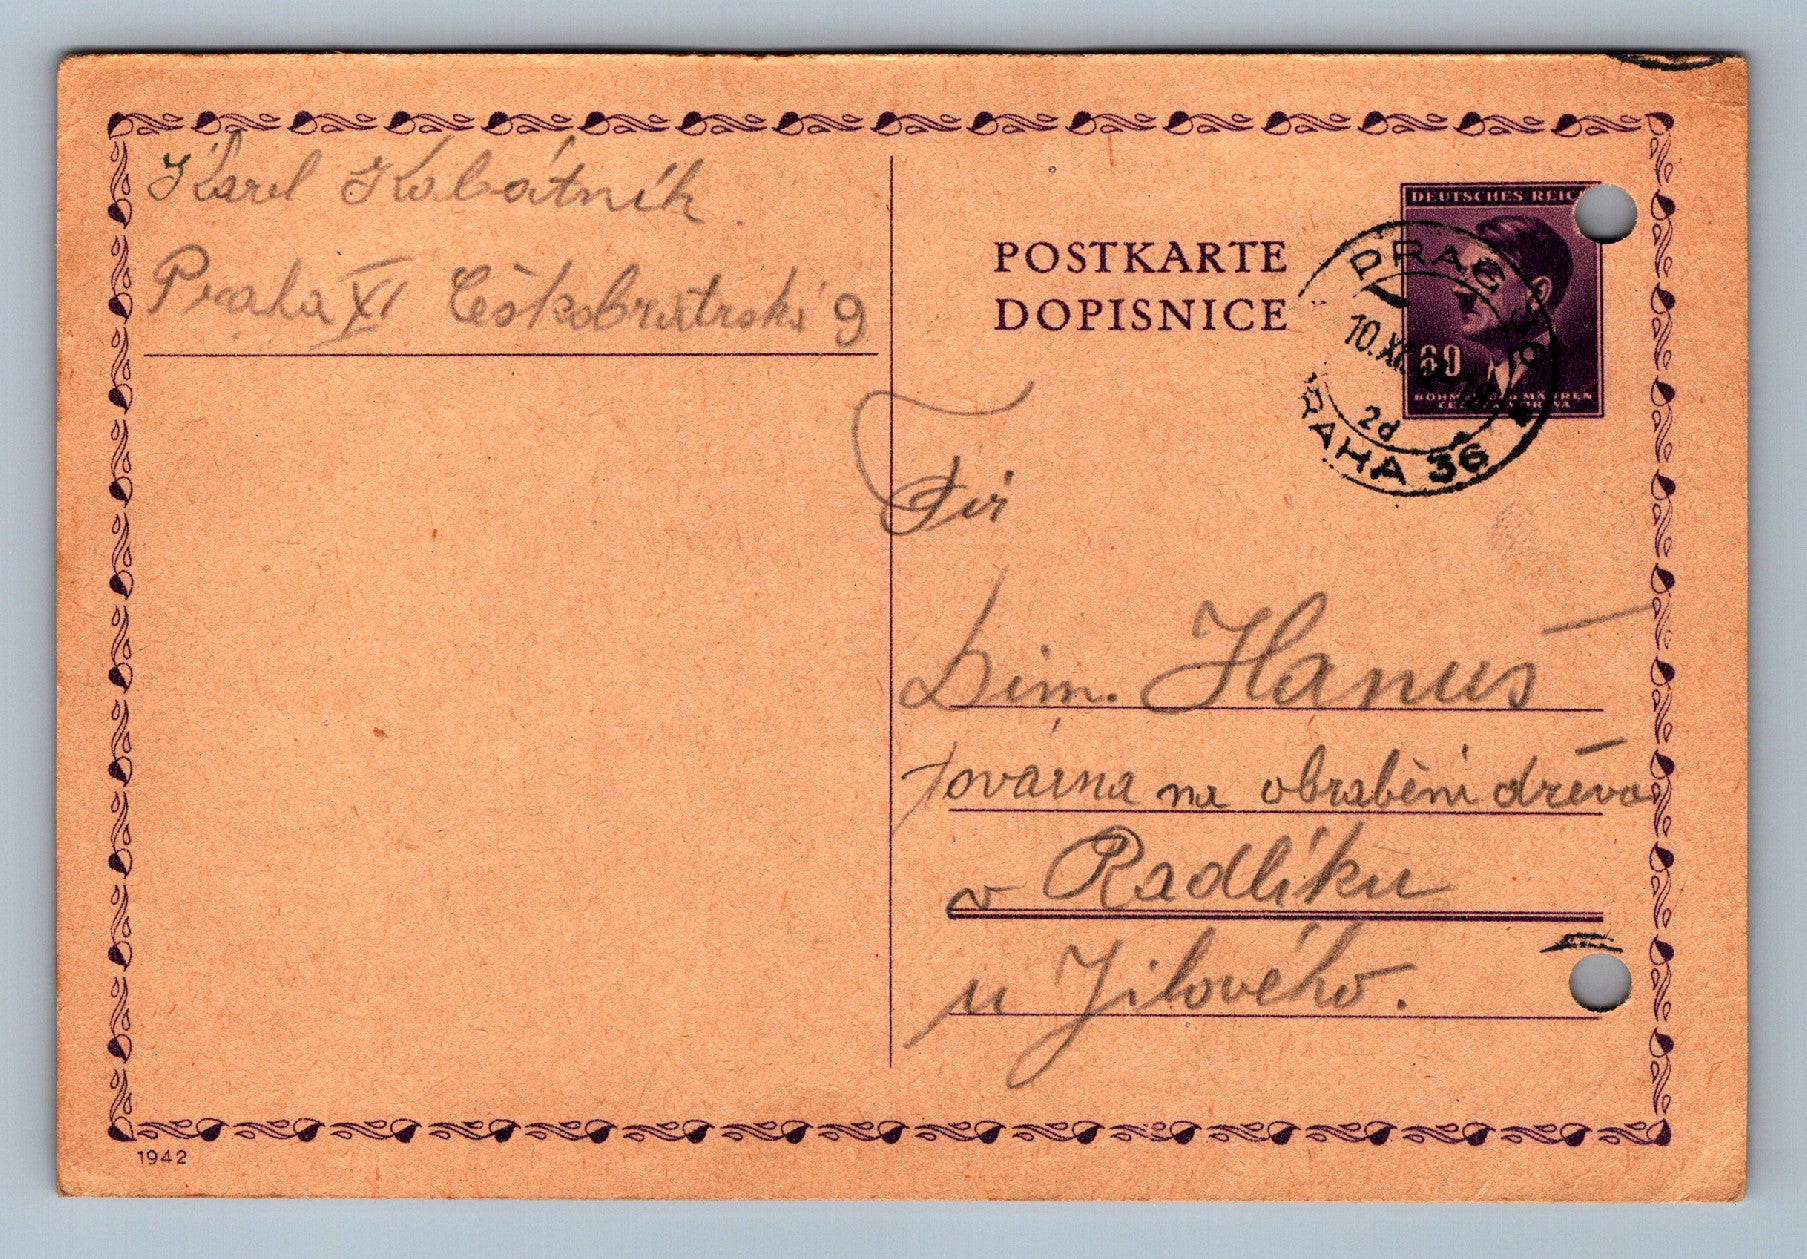 Karel Kabátník
Praha XI Českobratrská 9
POSTKARTE
DOPISNICE
DEUTSCHES REICH
60
BÖHMEN UND MÄHREN
ČECHY A MORAVA
PRAG 36
10.XI.
2d
PRAHA 36
Fir
Dim. Hanuš
továrna na obrábění dřeva
v Radlíku
u Jílového.
1942